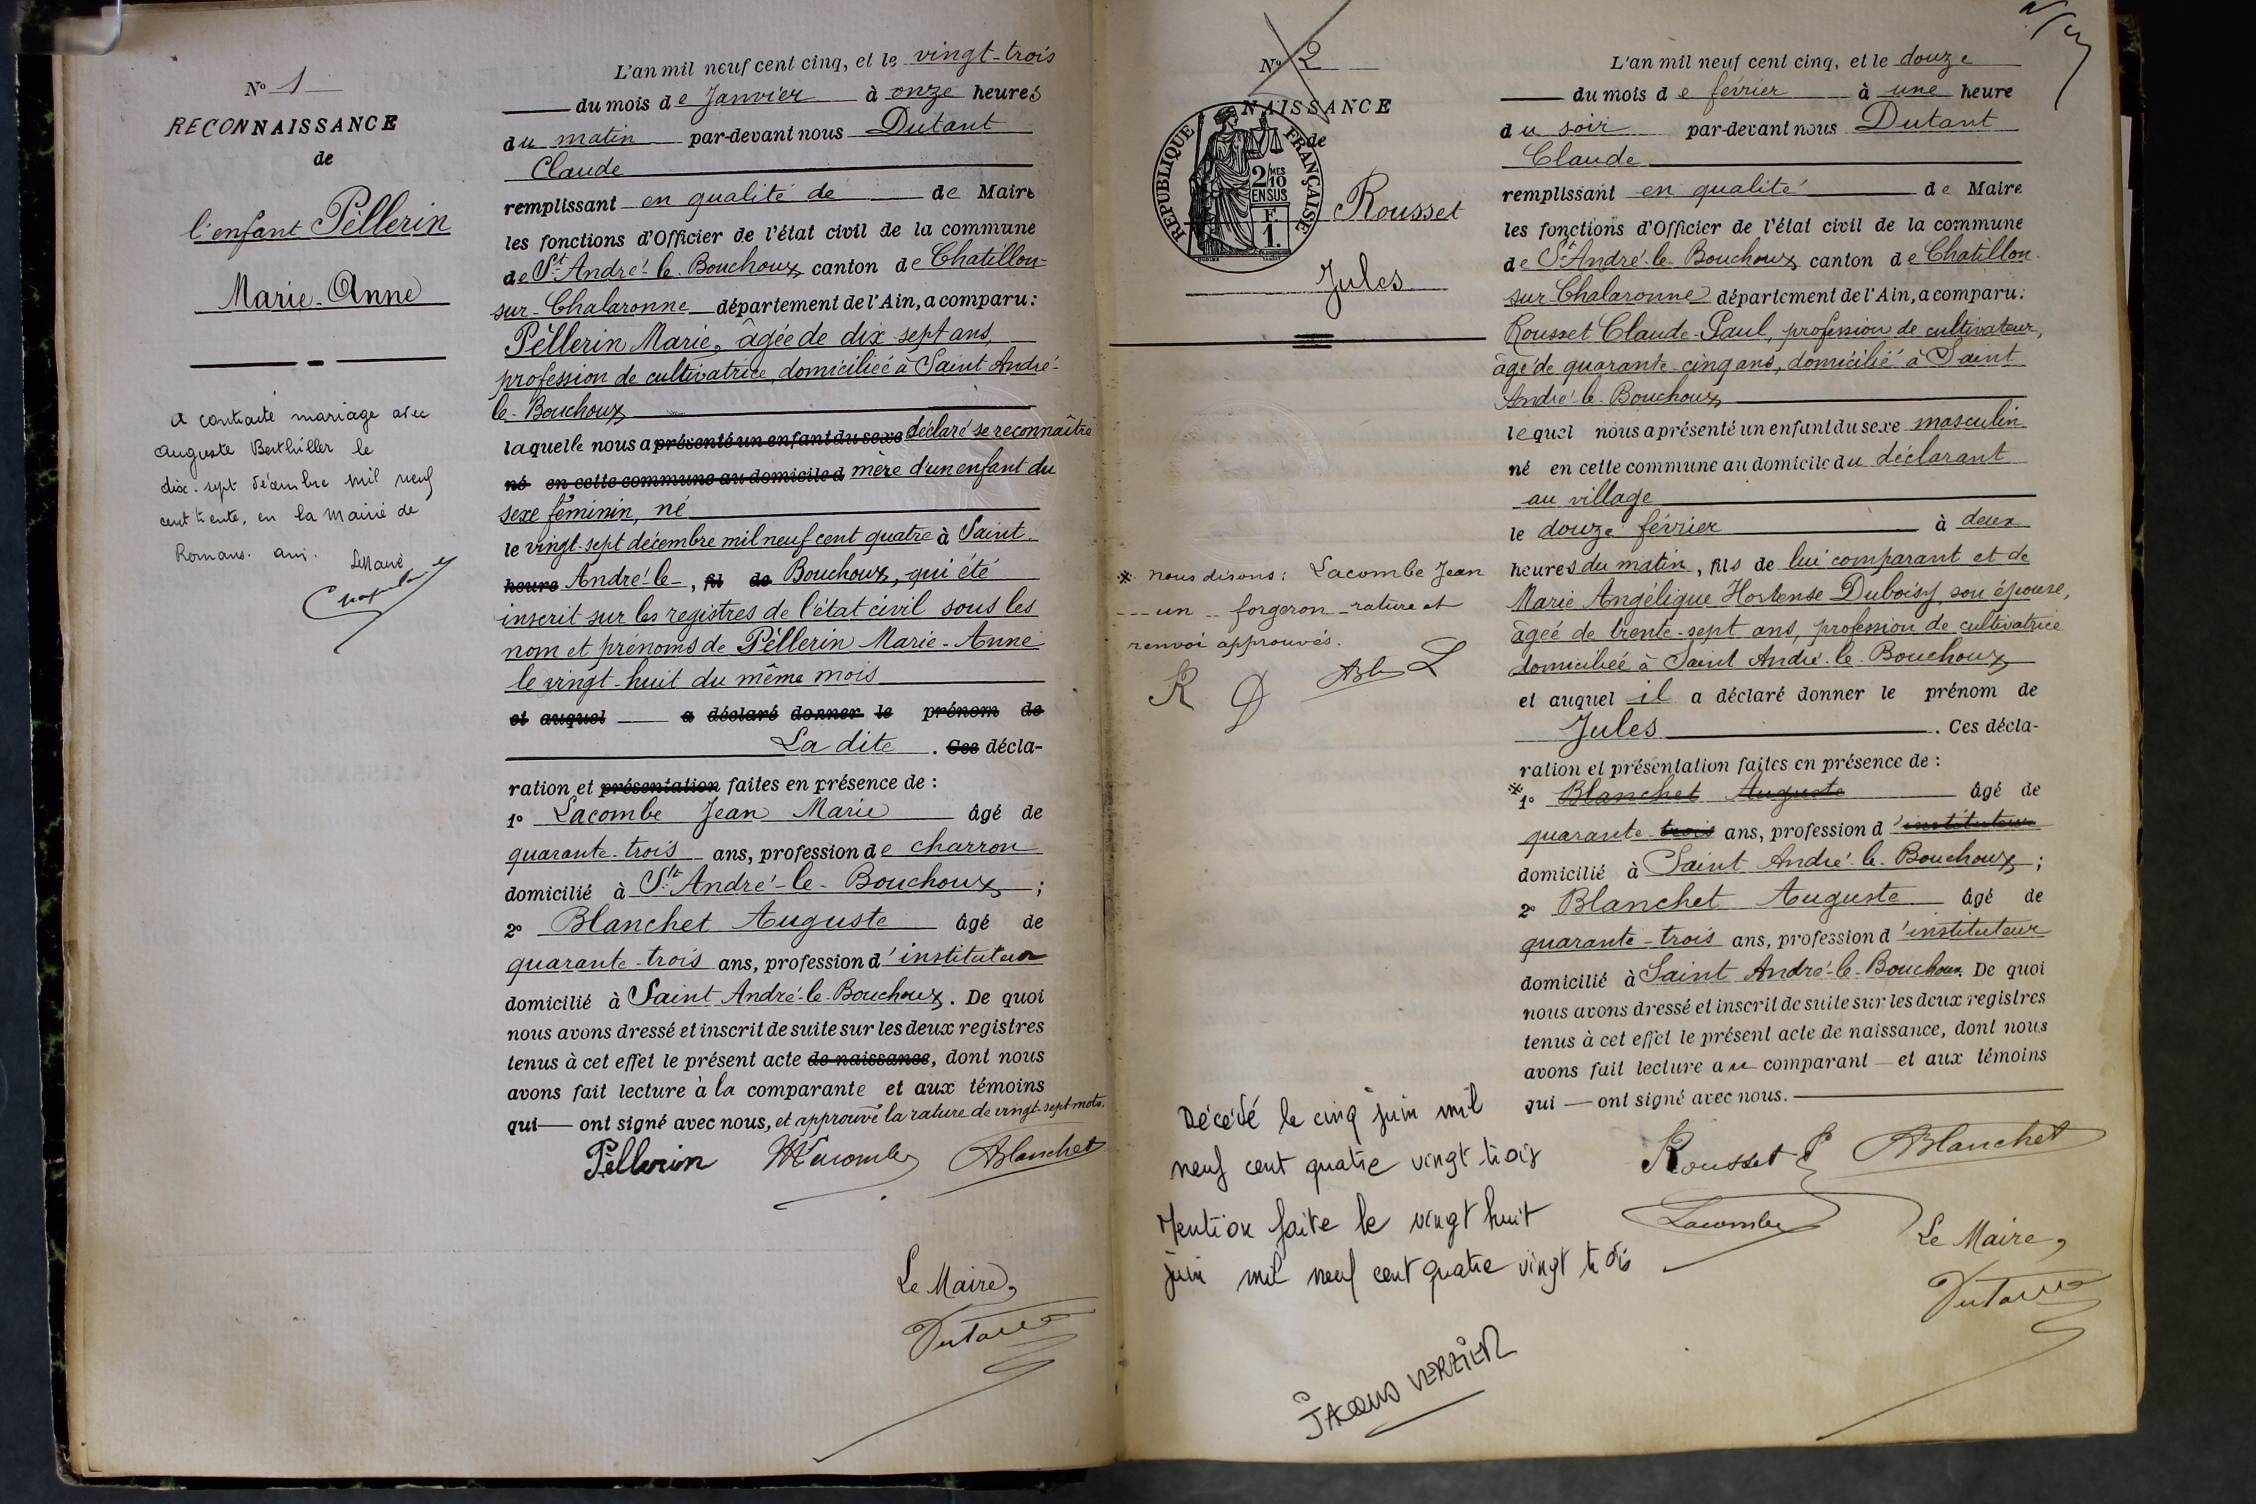 N° 1
RECONNAISSANCE
de
l'enfant Pèllerin
Marie-Anne
A contracté mariage avec
Auguste Berthillier le
dix-sept décembre mil neuf
cent trente, en la Mairie de
Romans. ain.
Le Maire
L'an mil neuf cent cinq, et le vingt-trois
du mois de Janvier à onze heures
du matin par-devant nous Dutant
Claude
remplissant en qualité de de Maire
les fonctions d'Officier de l'état civil de la commune
de St André-le-Bouchoux canton de Chatillon-
sur-Chalaronne département de l'Ain, a comparu:
Pèllerin Marie, âgée de dix sept ans,
profession de cultivatrice, domiciliée à Saint André-
le-Bouchoux
laquelle nous a présenté un enfant du sexe déclaré se reconnaître
né en cette commune au domicile d mère d'un enfant du
sexe féminin, né
le vingt-sept décembre mil neuf cent quatre à Saint
heure André-le-, fil de Bouchoux, qui été
inscrit sur les registres de l'état civil sous les
nom et prénoms de Pèllerin Marie-Anne
le vingt-huit du même mois
et auquel a déclaré donner le prénom de
La dite . Ces décla-
ration et présentation faites en présence de :
1° Lacombe Jean Marie âgé de
quarante-trois ans, profession de charron
domicilié à St André-le-Bouchoux ;
2° Blanchet Auguste âgé de
quarante-trois ans, profession d'instituteur
domicilié à Saint André-le-Bouchoux. De quoi
nous avons dressé et inscrit de suite sur les deux registres
tenus à cet effet le présent acte de naissance, dont nous
avons fait lecture à la comparante et aux témoins
qui ont signé avec nous, et approuvé la rature de vingt-sept mots.
Pèllerin Lacombe ABlanchet
Le Maire,
Dutant
N° 2
NAISSANCE
de
RÉPUBLIQUE FRANÇAISE
2/10 MES
EN SUS
F.
1.
Rousset
Jules
* nous disons: Lacombe Jean
---un---forgeron-rature et
renvoi approuvés.
R D ABl L
Décédé le cinq juin mil
neuf cent quatre vingt trois
Mention faite le vingt huit
juin mil neuf cent quatre vingt trois
JACQUES VERZIER
L'an mil neuf cent cinq, et le douze
du mois de février à une heure
du soir par-devant nous Dutant
Claude
remplissant en qualité de Maire
les fonctions d'Officier de l'état civil de la commune
de St André-le-Bouchoux canton de Chatillon-
sur-Chalaronne département de l'Ain, a comparu:
Rousset Claude-Paul, profession de cultivateur,
âgé de quarante-cinq ans, domicilié à Saint
André-le-Bouchoux
lequel nous a présenté un enfant du sexe masculin
né en cette commune au domicile du déclarant
au village
le douze février à deux
heures du matin, fils de lui comparant et de
Marie Angélique Hortense Duboisy, son épouse,
âgée de trente-sept ans, profession de cultivatrice
domiciliée à Saint André-le-Bouchoux
et auquel il a déclaré donner le prénom de
Jules . Ces décla-
ration et présentation faites en présence de :
* 1° Blanchet Auguste âgé de
quarante-trois ans, profession d'instituteur
domicilié à Saint André-le-Bouchoux ;
2° Blanchet Auguste âgé de
quarante-trois ans, profession d'instituteur
domicilié à Saint André-le-Bouchoux. De quoi
nous avons dressé et inscrit de suite sur les deux registres
tenus à cet effet le présent acte de naissance, dont nous
avons fait lecture au comparant et aux témoins
qui ont signé avec nous.
Rousset P ABlanchet
Lacombe
Le Maire,
Dutant